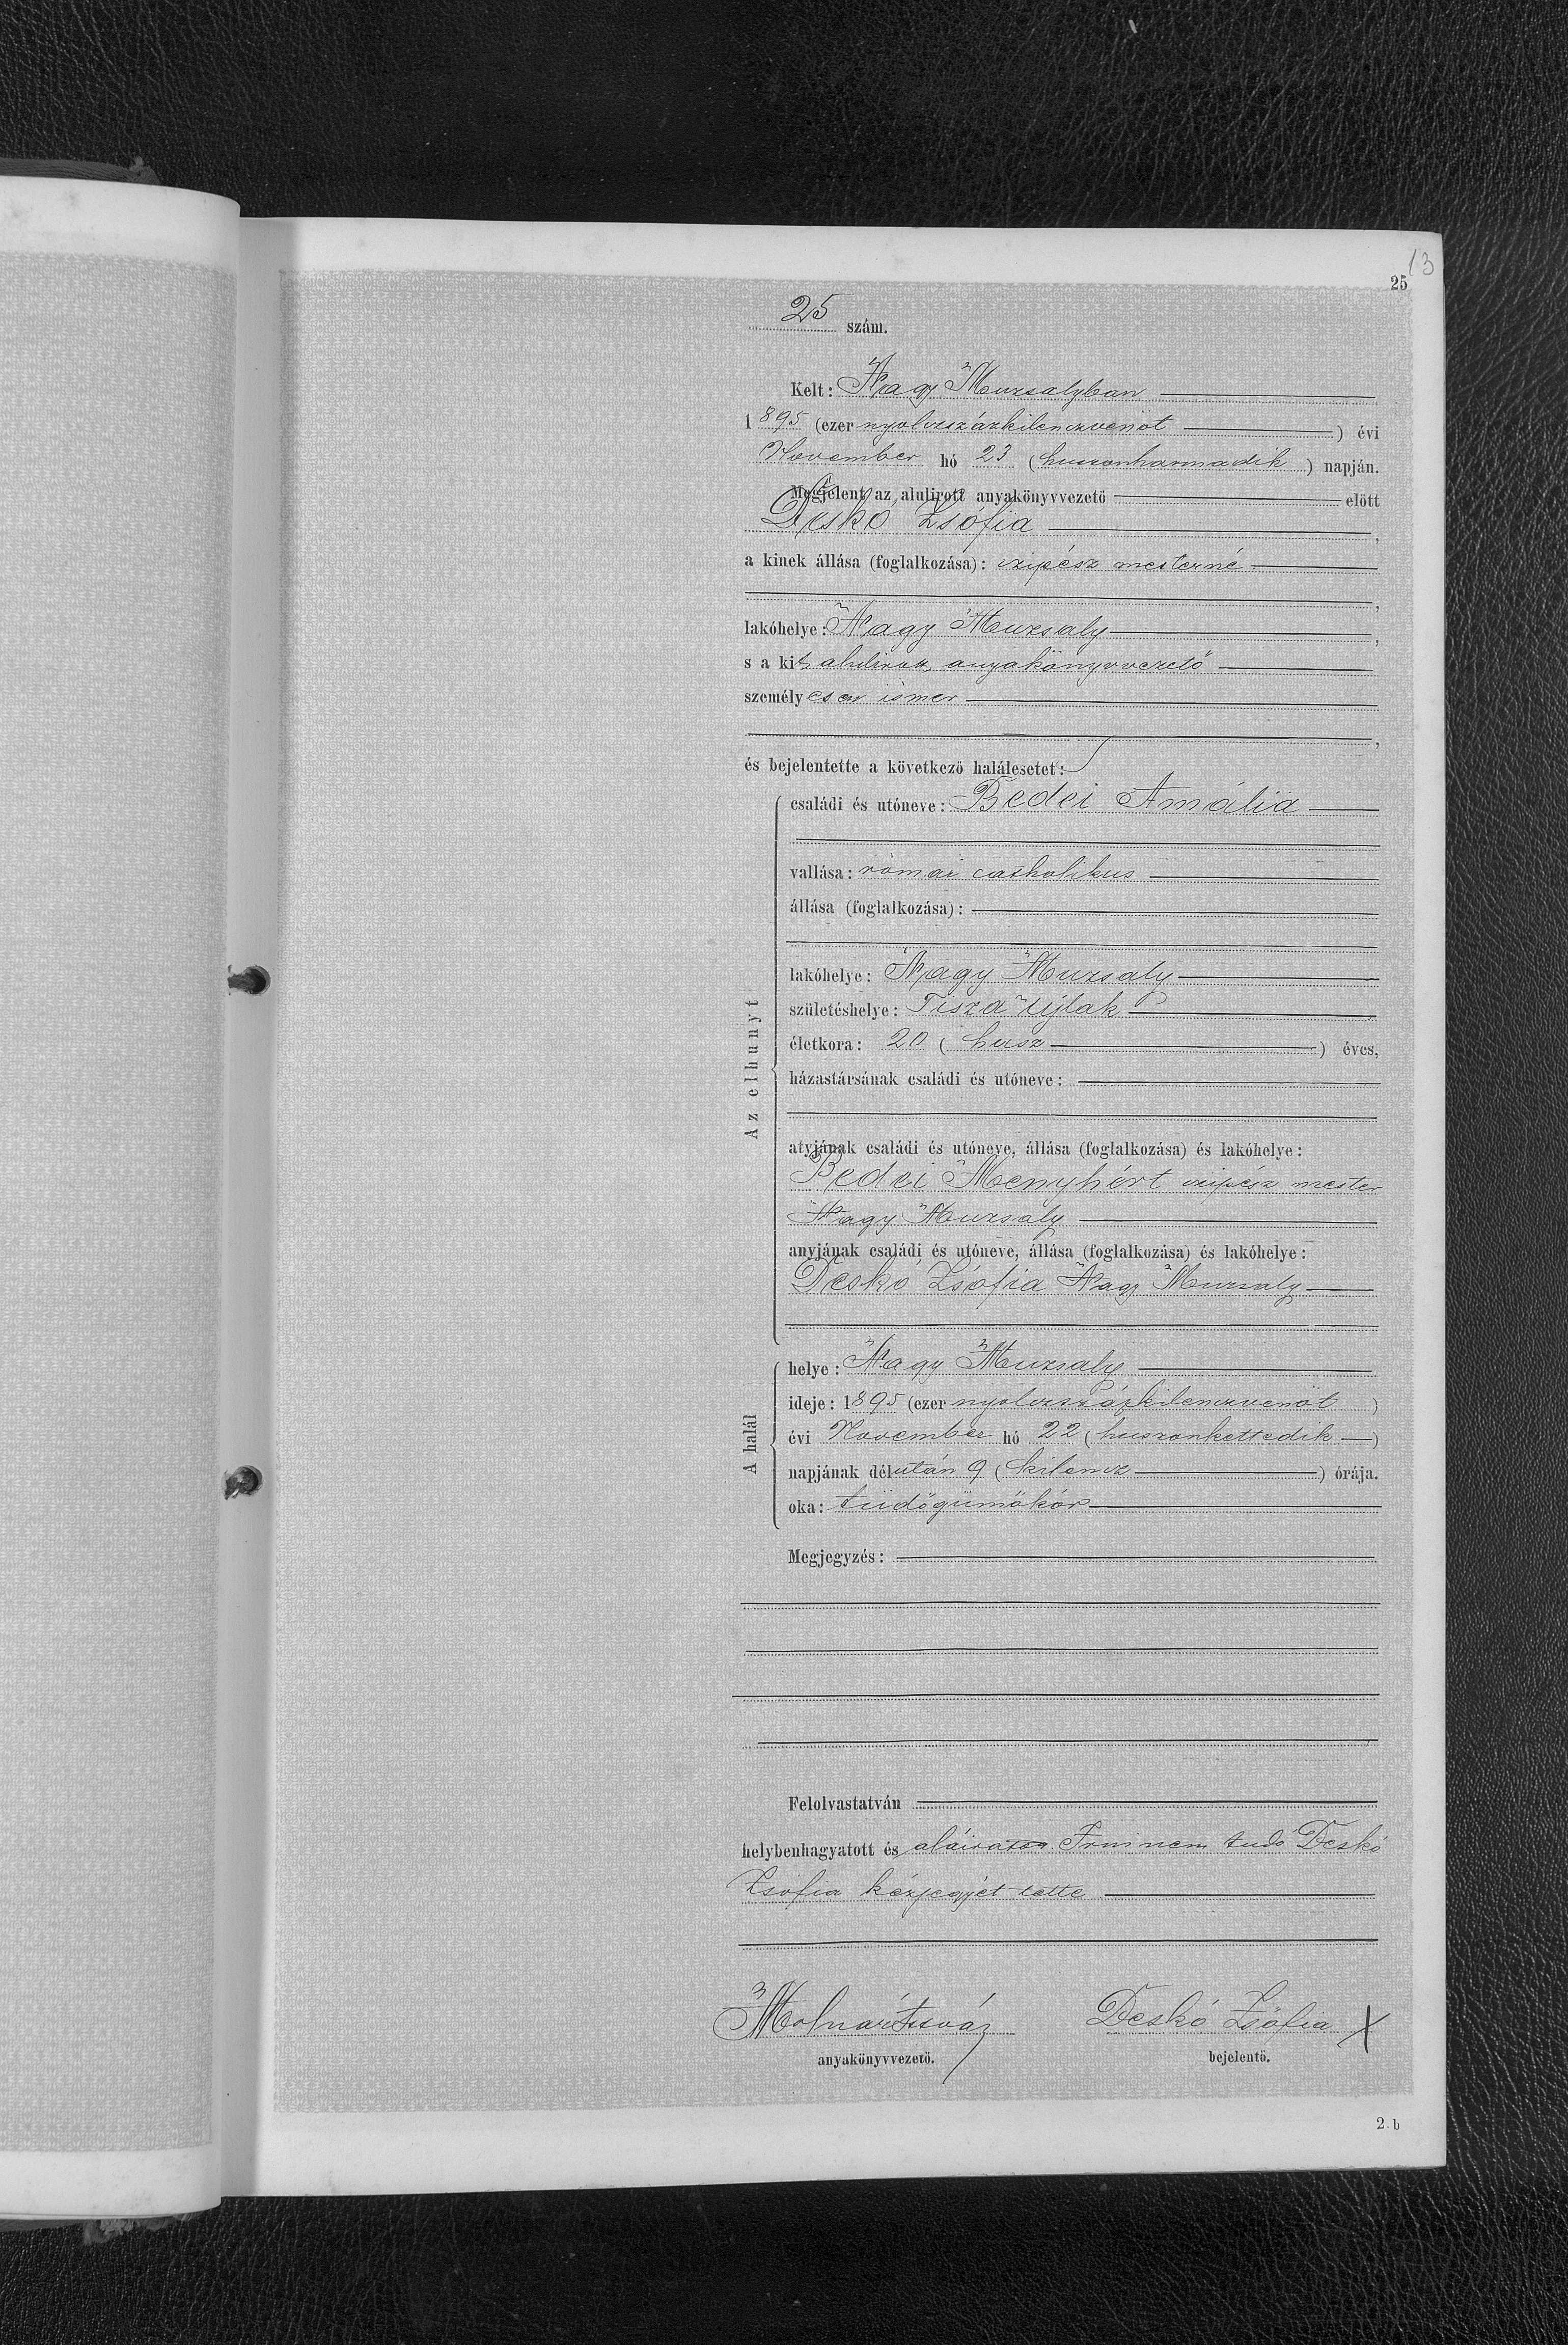 13
25
25 szám.
Kelt: Nagy Muzsalyban
1895 (ezer nyolczszázkilenczvenöt) évi
November hó 23 (huszonharmadik) napján.
Megjelent az alulirott anyakönyvvezető előtt
Deskó Zsófia,
a kinek állása (foglalkozása): czipész mesterné
,
lakóhelye: Nagy Muzsaly,
s a kit alulirott anyakönyvvezető
személyesen ismer
,
és bejelentette a következő halálesetet:
Az elhunyt
családi és utóneve: Bedei Amália
vallása: római catholikus
állása (foglalkozása):
lakóhelye: Nagy Muzsaly
születéshelye: Tisza Ujlak
életkora: 20 (husz) éves,
házastársának családi és utóneve:
atyjának családi és utóneve, állása (foglalkozása) és lakóhelye:
Bedei Menyhért czipész mester
Nagy Muzsaly
anyjának családi és utóneve, állása (foglalkozása) és lakóhelye:
Deskó Zsófia Nagy Muzsaly
A halál
helye: Nagy Muzsaly
ideje: 1895 (ezer nyolczszázkilenczvenöt)
évi November hó 22 (huszonkettedik)
napjának délután 9 (kilencz) órája.
oka: tüdőgümőkór
Megjegyzés:
Felolvastatván
helybenhagyatott és aláiratott. Irni nem tudó Deskó
Zsófia kézjegyét tette
Molnár Deskó Zsófia X
anyakönyvvezető. bejelentő.
2.b